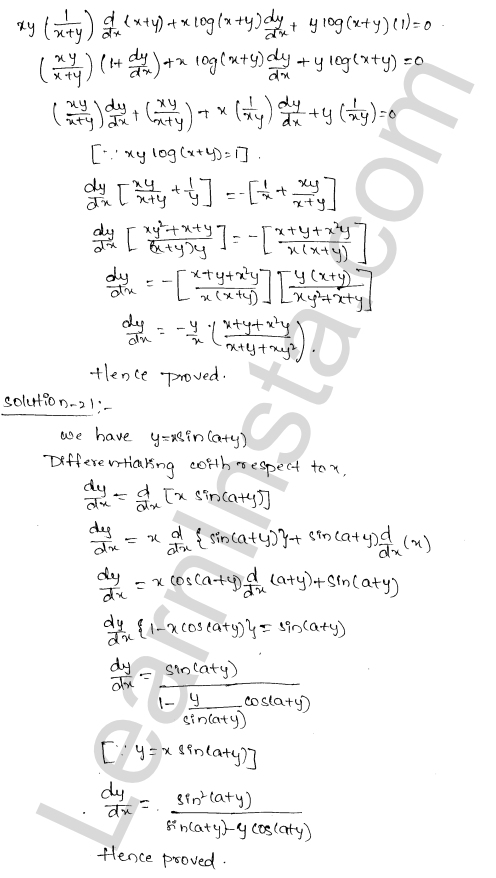 xy (1/(x+y)) d/dx (x+y) + x log(x+y) dy/dx + y log(x+y) (1) = 0.
(xy/(x+y)) (1 + dy/dx) + x log(x+y) dy/dx + y log(x+y) = 0
(xy/(x+y)) dy/dx + (xy/(x+y)) + x (1/xy) dy/dx + y (1/xy) = 0
[∵ xy log(x+y) = 1].
dy/dx [xy/(x+y) + 1/y] = -[1/x + xy/(x+y)]
dy/dx [(xy²+x+y)/((x+y)y)] = -[(x+y+x²y)/(x(x+y))]
dy/dx = -[(x+y+x²y)/(x(x+y))] [y(x+y)/(xy²+x+y)]
dy/dx = -y/x ((x+y+x²y)/(x+y+xy²)).
Hence proved.
Solution-21:-
we have y = x sin(a+y)
Differentiating with respect to x,
dy/dx = d/dx [x sin(a+y)]
dy/dx = x d/dx {sin(a+y)} + sin(a+y) d/dx (x)
dy/dx = x cos(a+y) d/dx (a+y) + sin(a+y)
dy/dx {1 - x cos(a+y)} = sin(a+y)
dy/dx = sin(a+y)/(1 - y/sin(a+y) cos(a+y))
[∵ y = x sin(a+y)]
dy/dx = sin²(a+y)/(sin(a+y) - y cos(a+y))
Hence proved.
LearnInsta.com